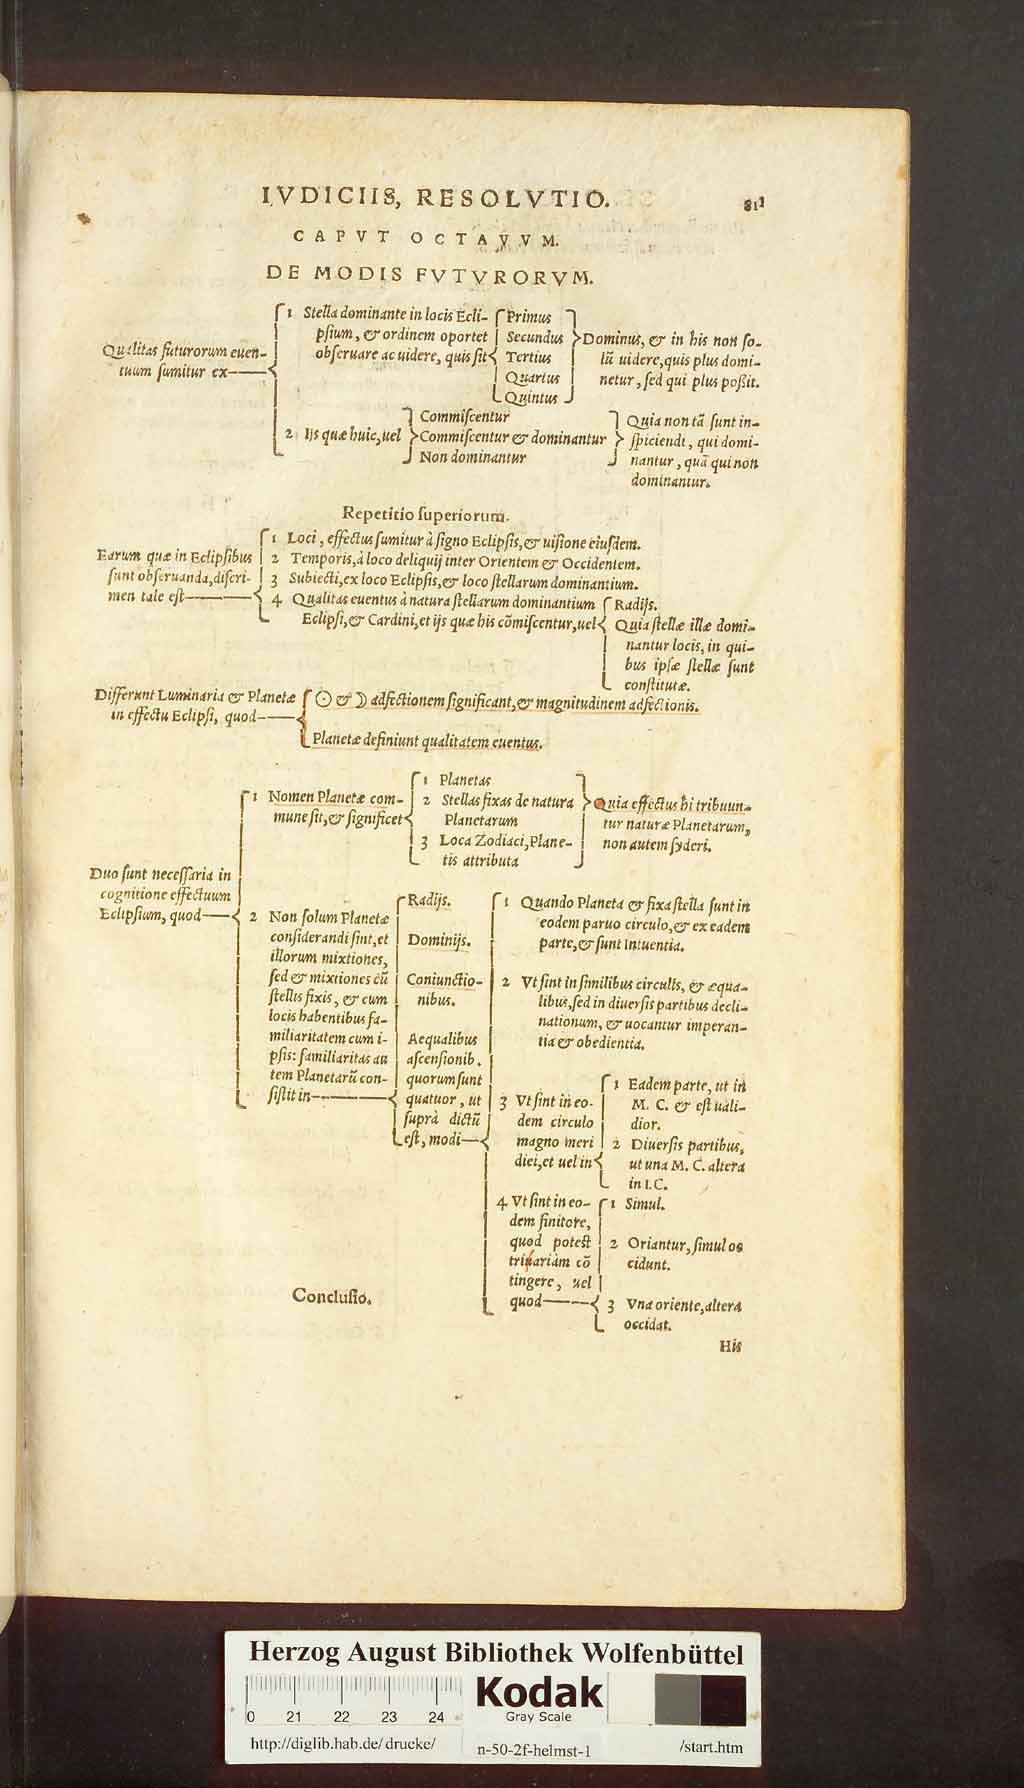 IVDICIIS, RESOLVTIO. 811
CAPVT OCTAVVM.
DE MODIS FVTVRORVM.
Qualitas futurorum euen-
tuum sumitur ex
1 Stella dominante in locis Ecli-
psium, & ordinem oportet
obseruare ac uidere, quis sit
Primus
Secundus
Tertius
Quartus
Quintus
Dominus, & in his non so-
lũ uidere, quis plus domi-
netur, sed qui plus poßit.
2 Ijs quæ huic, uel
Commiscentur
Commiscentur & dominantur
Non dominantur
Quia non tã sunt in-
spiciendi, qui domi-
nantur, quã qui non
dominantur.
Repetitio superiorum.
Earum quæ in Eclipsibus
sunt obseruanda, discri-
men tale est
1 Loci, effectus sumitur à signo Eclipsis, & uisione eiusdem.
2 Temporis, à loco deliquij inter Orientem & Occidentem.
3 Subiecti, ex loco Eclipsis, & loco stellarum dominantium.
4 Qualitas euentus à natura stellarum dominantium
Eclipsi, & Cardini, et ijs quæ his cõmiscentur, uel
Radijs.
Quia stellæ illæ domi-
nantur locis, in qui-
bus ipsæ stellæ sunt
constitutæ.
Differunt Luminaria & Planetæ
in effectu Eclipsi, quod
☉ & ☽ adfectionem significant, & magnitudinem adfectionis.
Planetæ definiunt qualitatem euentus.
Duo sunt necessaria in
cognitione effectuum
Eclipsium, quod
1 Nomen Planetæ com-
mune sit, & significet
1 Planetas
2 Stellas fixas de natura
Planetarum
3 Loca Zodiaci, Plane-
tis attributa
Quia effectus hi tribuun-
tur naturæ Planetarum,
non autem syderi.
2 Non solum Planetæ
considerandi sint, et
illorum mixtiones,
sed & mixtiones cũ
stellis fixis, & cum
locis habentibus fa-
miliaritatem cum i-
psis: familiaritas au
tem Planetarũ con-
sistit in
Radijs.
Dominijs.
Coniunctio-
nibus.
Aequalibus
ascensionib.
quorum sunt
quatuor, ut
suprà dictũ
est, modi
1 Quando Planeta & fixa stella sunt in
eodem paruo circulo, & ex eadem
parte, & sunt Intuentia.
2 Vt sint in similibus circulis, & æqua-
libus, sed in diuersis partibus decli-
nationum, & uocantur imperan-
tia & obedientia.
3 Vt sint in eo-
dem circulo
magno meri
diei, et uel in
1 Eadem parte, ut in
M. C. & est uali-
dior.
2 Diuersis partibus,
ut una M. C. altera
in I. C.
4 Vt sint in eo-
dem finitore,
quod potest
trifariàm cõ
tingere, uel
quod
1 Simul.
2 Oriantur, simul oc
cidunt.
3 Vna oriente, altera
occidat.
Conclusio.
His
Herzog August Bibliothek Wolfenbüttel
0 21 22 23 24
Kodak
Gray Scale
http://diglib.hab.de/drucke/ n-50-2f-helmst-1 /start.htm